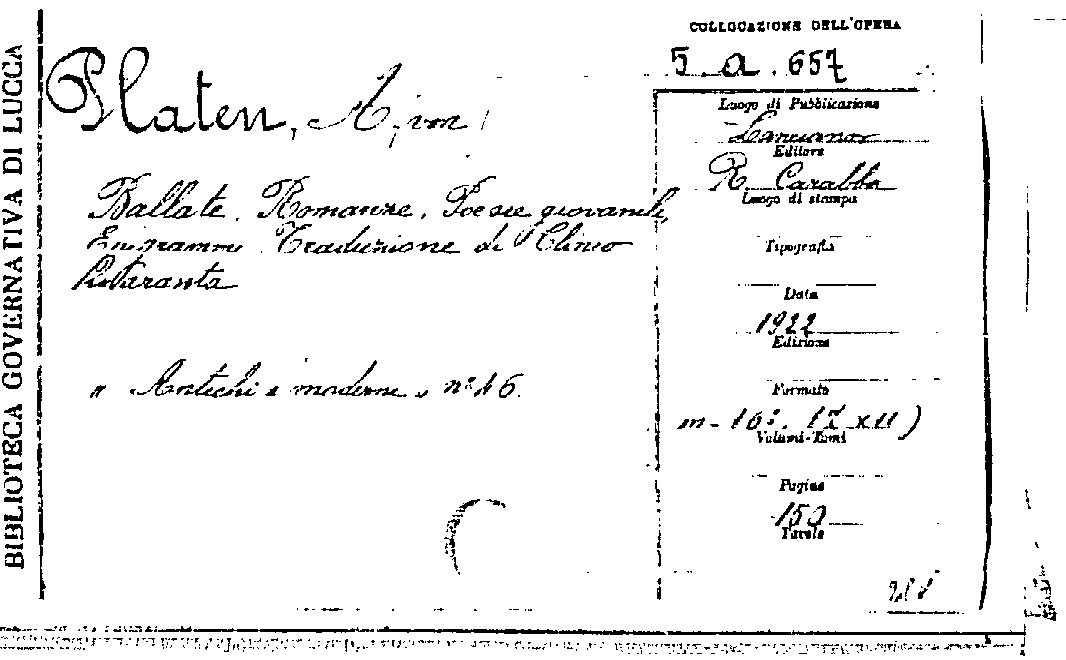 BIBLIOTECA GOVERNATIVA DI LUCCA
Platen, A, von
Ballate. Romanze. Poesie giovanili,
Epigrammi. Traduzione di Clinio
Quaranta
" Antichi e moderni " n° 16.
COLLOCAZIONE DELL'OPERA
5. a. 657
Luogo di Pubblicazione
Lanciano
Editore
R. Carabba
Luogo di stampa
Tipografia
Data
1922
Edizione
Formato
m-16°.
Volumi-Tomi
Pagine
150
Tavole